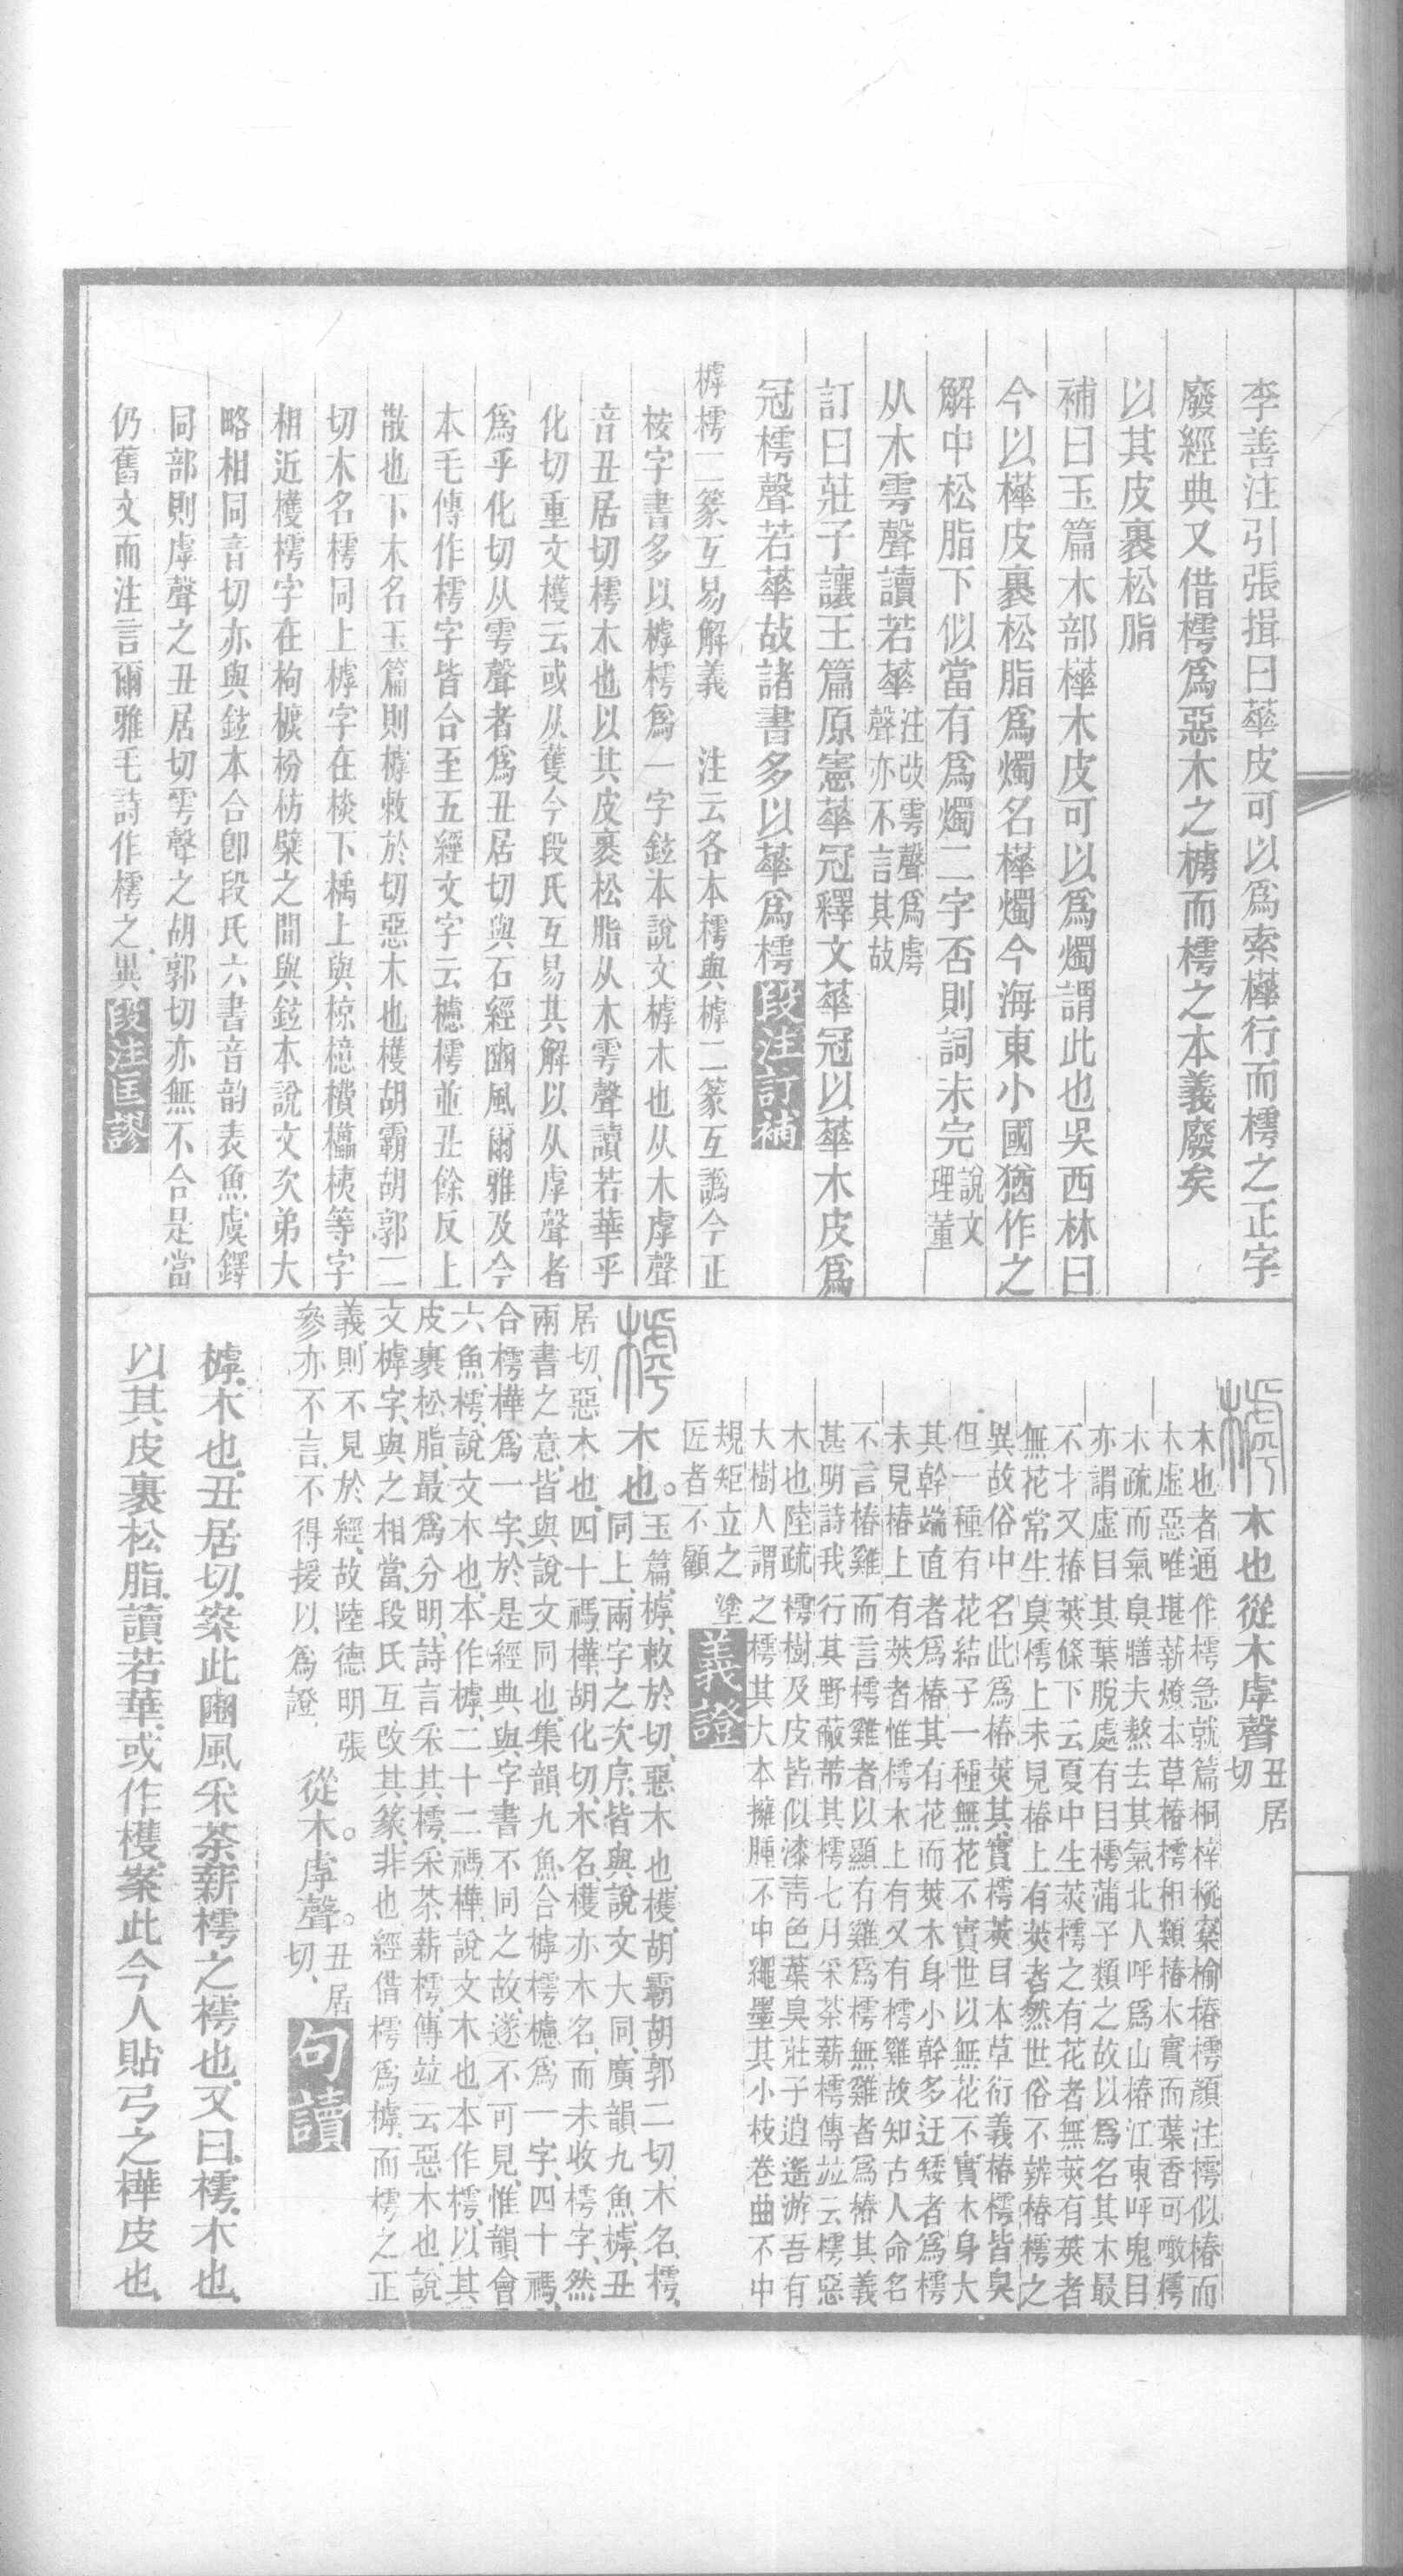 李善注引張揖曰蕐皮可以爲索樺行而樗之正字
廢經典又借樗爲惡木之樗而樗之本義廢矣
以其皮裹松脂
補曰玉篇木部樺木皮可以爲燭謂此也吳西林曰
今以樺皮裹松脂爲燭名樺燭今海東小國猶作之
解中松脂下似當有爲燭二字否則詞未完說文理董
从木雩聲讀若蕐注改雩聲爲虖聲亦不言其故
訂曰莊子讓王篇原憲蕐冠釋文蕐冠以蕐木皮爲
冠樗聲若蕐故諸書多以蕐爲樗段注訂補
樗樗二篆互易解義　注云各本樗與樗二篆互譌今正
桉字書多以樗樗爲一字鉉本說文樗木也从木虖聲
音丑居切樗木也以其皮裹松脂从木雩聲讀若華乎
化切重文檴云或从蒦今段氏互易其解以从虖聲者
爲乎化切从雩聲者爲丑居切與石經豳風爾雅及今
本毛傳作樗字皆合至五經文字云櫖樗並丑餘反上
散也下木名玉篇則樗敕於切惡木也檴胡霸胡郭二
切木名樗同上樗字在棪下楀上與椋檍櫕櫨桋等字
相近檴樗字在枸樜枌枋檗之間與鉉本說文次弟大
略相同音切亦與鉉本合卽段氏六書音韵表魚虞鐸
同部則虖聲之丑居切雩聲之胡郭切亦無不合是當
仍舊文而注言爾雅毛詩作樗之異段注匡謬
木也從木虖聲丑居切
木也者通作樗急就篇桐梓樅榕榆椿樗顏注樗似椿而
木虛惡唯堪薪燎本草椿樗相類椿木實而葉香可噉樗
木疏而氣臭膳夫熬去其氣北人呼爲山椿江東呼鬼目
亦謂虛目其葉脫處有曰樗蒲子類之故以爲名其木最
不才又椿莢條下云夏中生莢樗之有花者無莢有莢者
無花常生臭樗上未見椿上有莢者然世俗不辨椿樗之
異故俗中名此爲椿莢其實樗莢目本草衍義椿樗皆臭
但一種有花結子一種無花不實世以無花不實木身大
其幹端直者爲椿其有花而莢木身小幹多迂矮者爲樗
未見椿上有莢者惟樗木上有又有樗雞故知古人命名
不言椿雞而言樗雞者以顯有雞爲樗無雞者爲椿其義
甚明詩我行其野蔽芾其樗七月采荼薪樗傳竝云樗惡
木也陸疏樗樹及皮皆似漆靑色葉臭莊子逍遙游吾有
大樹人謂之樗其大本擁腫不中繩墨其小枝卷曲不中
規矩立之塗匠者不顧義證
木也。玉篇、樗、敕於切、惡木也、檴、胡霸胡郭二切、木名、樗、
同上、兩字之次序、皆與說文大同、廣韻九魚、樗、丑
居切、惡木也、四十禡、樺、胡化切、木名、檴亦木名、而未收樗字、然
兩書之意、皆與說文同也、集韻九魚、合樗樗櫖爲一字、四十禡、
合樗樺爲一字、於是經典與字書不同之故、遂不可見、惟韻會
六魚、樗、說文木也、本作樗、二十二禡、樺、說文木也、本作樗、以其
皮裹松脂、最爲分明、詩言采其樗、采荼薪樗、傳竝云惡木也、說
文樗字、與之相當、段氏互改其篆、非也、經借樗爲樗、而樗之正
義、則不見於經、故陸德明張
參亦不言、不得援以爲證、從木。虖聲。丑居切、句讀
樗、木也、丑居切、案此豳風采荼薪樗之樗也、又曰、樗、木也、
以其皮裹松脂、讀若華、或作檴、案此今人貼弓之樺皮也、